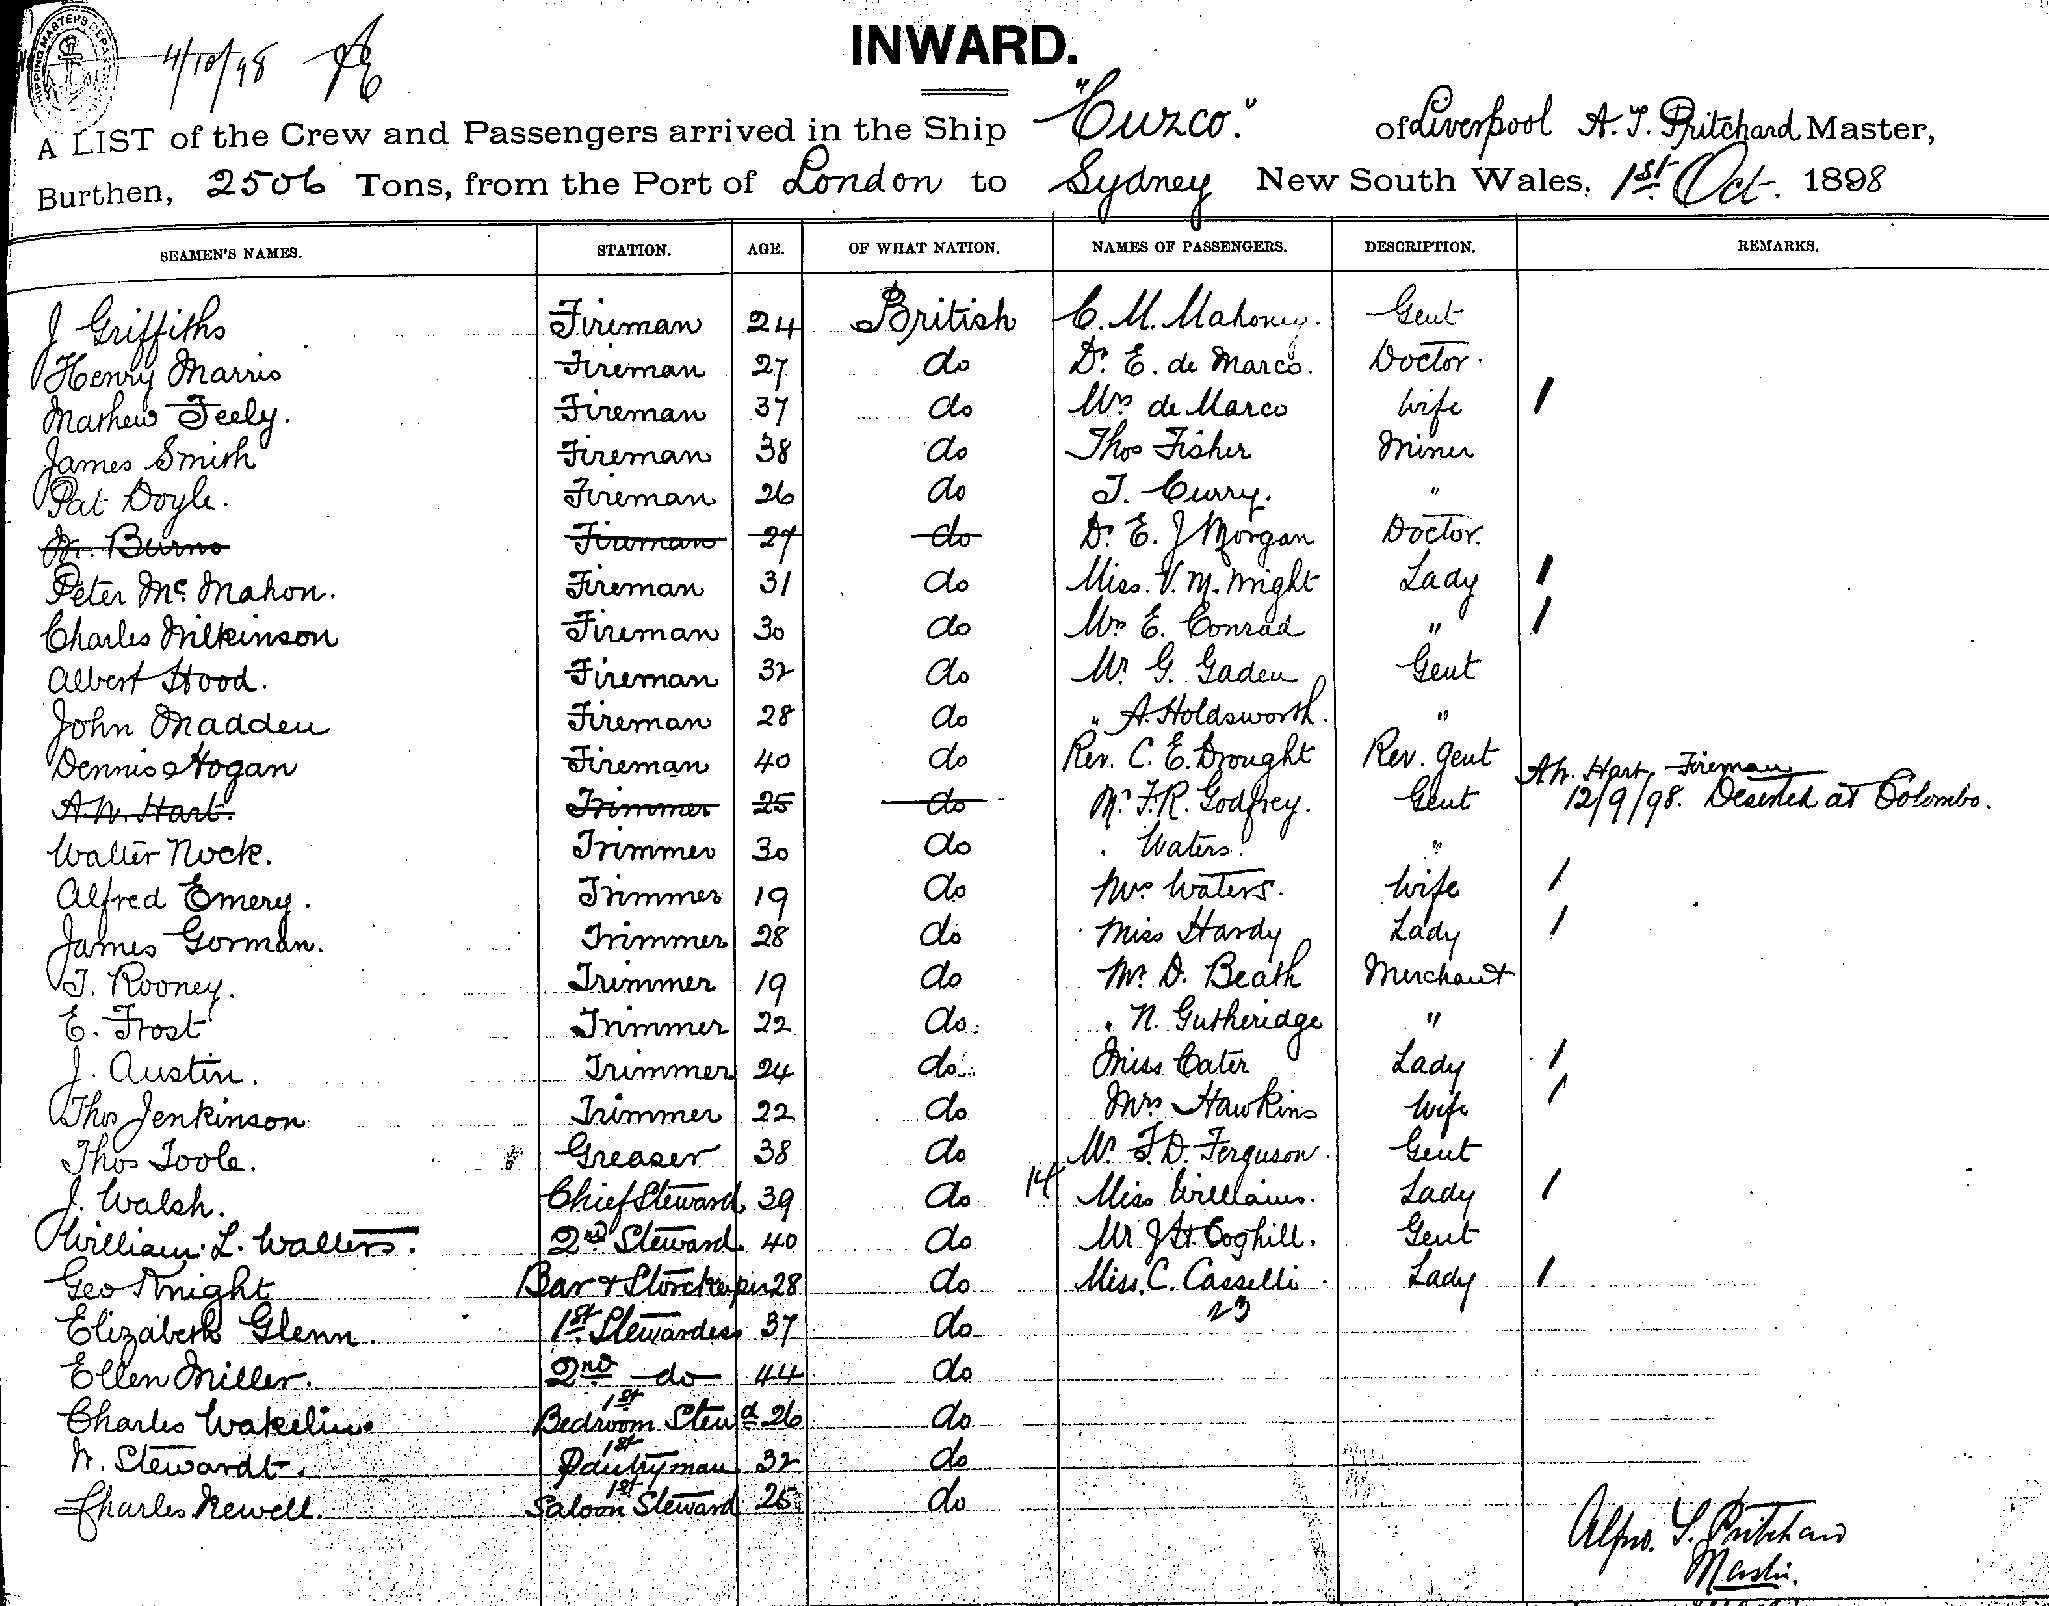 4/10/98
INWARD.
A LIST of the Crew and Passengers arrived in the Ship "Cuzco." of Liverpool A. T. Pritchard Master,
Burthen, 2506 Tons, from the Port of London to Sydney New South Wales, 1st Oct. 1898
SEAMEN'S NAMES. STATION. AGE. OF WHAT NATION. NAMES OF PASSENGERS. DESCRIPTION. REMARKS.
J Griffiths Fireman 24 British C. M. Mahoney. Gent
Henry Marris Fireman 27 do Dr. E. de Marco. Doctor.
Mathew Feely. Fireman 37 do Mrs de Marco Wife /
James Smith Fireman 38 do Thos Fisher Miner
Pat Doyle. Fireman 26 do T. Curry. "
W. Burns Fireman 27 do Dr. E. J Morgan Doctor.
Peter Mc Mahon. Fireman 31 do Miss. V. M. Wright Lady /
Charles Wilkinson Fireman 30 do Mrs E. Conrad " /
Albert Hood. Fireman 32 do Mr. G. Gaden Gent
John Madden Fireman 28 do " A. Holdsworth. "
Dennis Hogan Fireman 40 do Rev. C. E. Drought Rev. gent A W. Hart, Fireman
A. W. Hart. Trimmer 25 do Mr. F. R. Godfrey. Gent 12/9/98. Deserted at Colombo.
Walter Nock. Trimmer 30 do " Waters. "
Alfred Emery. Trimmer 19 do Mrs Waters. Wife /
James Gorman. Trimmer 28 do Miss Hardy Lady /
T. Rooney. Trimmer 19 do Mr. D. Beath Merchant
E. Frost Trimmer 22 do. " N. Gutheridge "
J. Austin. Trimmer 24 do. Miss Cater Lady /
Thos Jenkinson Trimmer 22 do Mrs Hawkins Wife /
Thos Toole. Greaser 38 do Mr. F. D. Ferguson. Gent
J. Walsh. Chief Steward. 39 do 14 Miss Williams. Lady /
William. L. Walters. 2nd Steward. 40 do Mr J H. Coghill. Gent
Geo Knight Bar & Storekeeper 28 do Miss. C. Casselli Lady /
23
Elizabeth Glenn. 1st Stewardess 37 do
Ellen Miller. 2nd do 44 do
Charles Wakeling 1st Bedroom Stewd 26 do
W. Stewardt. 1st Pantryman 32 do
Charles Newell. 1st Saloon Steward 25 do
Alfred. T. Pritchard
Master.